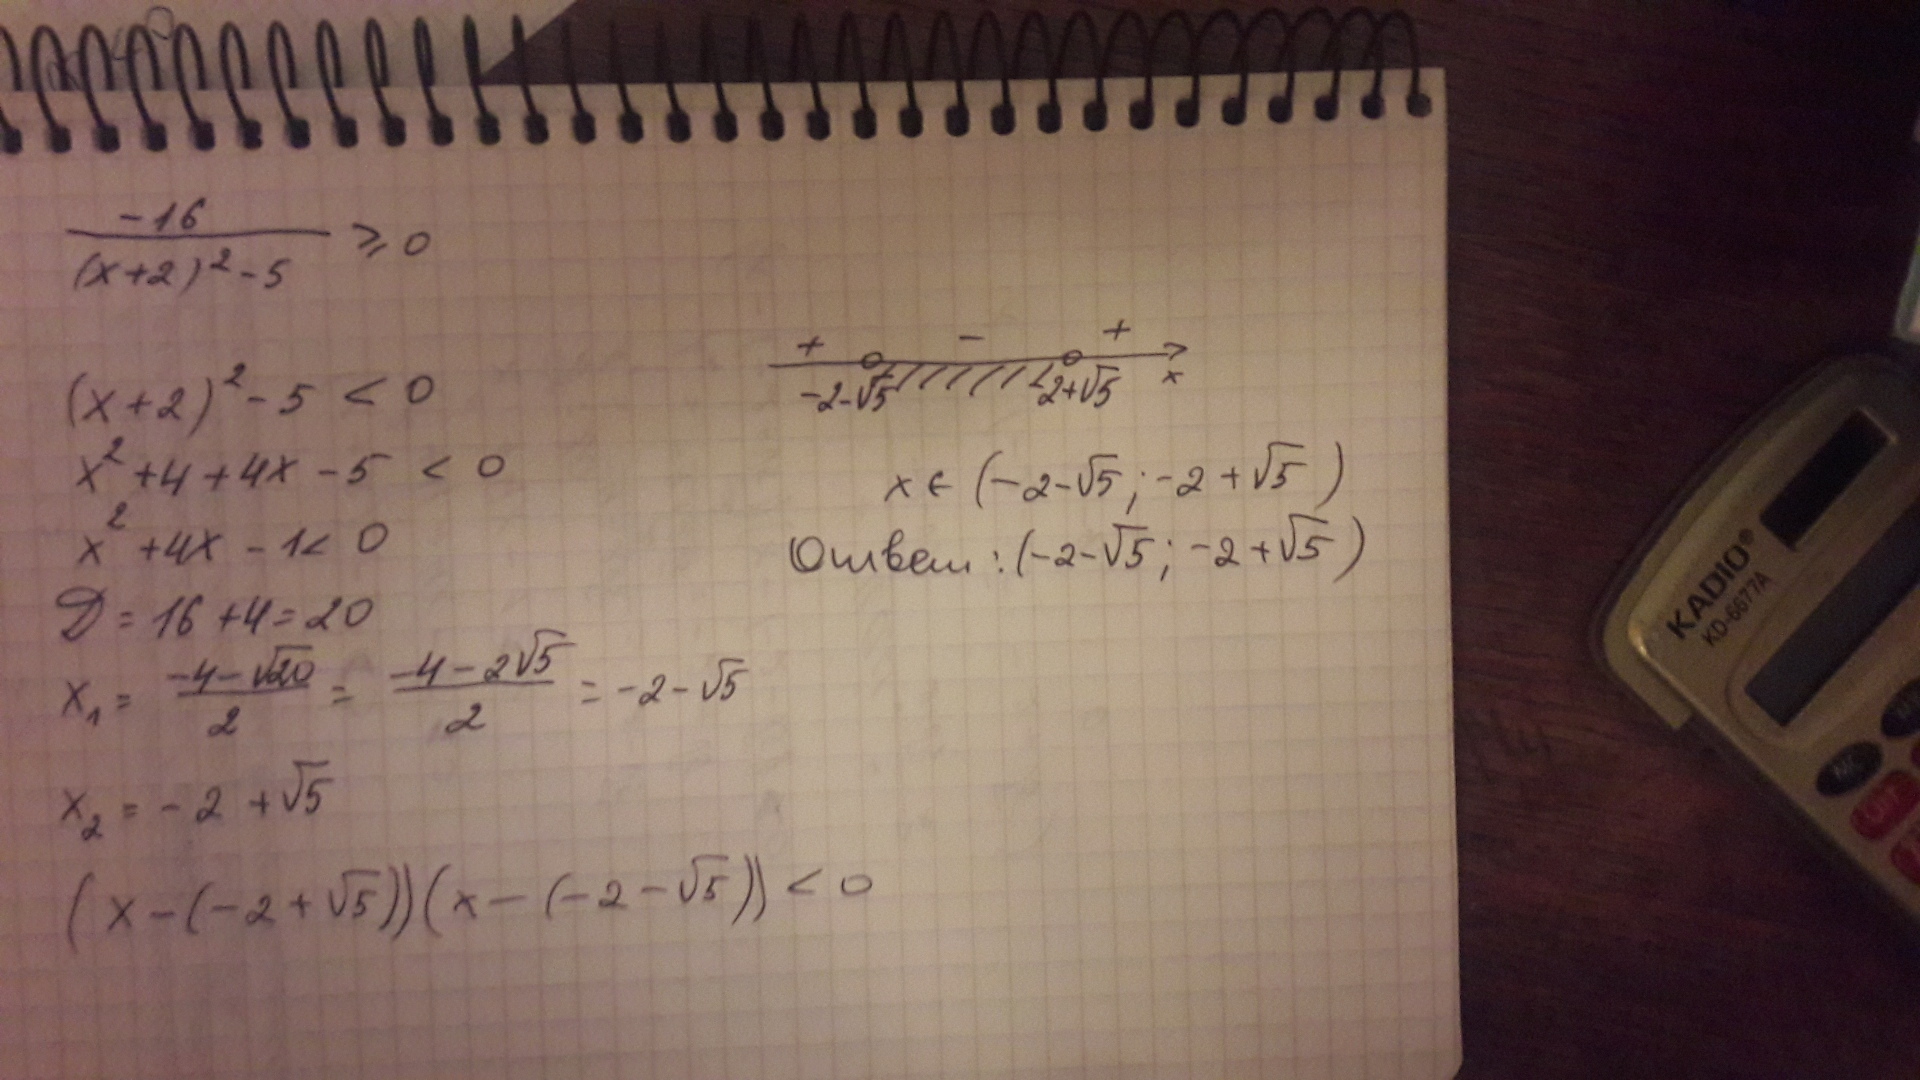 -16
(x+2)²-5 ≥ 0
(x+2)²-5 < 0
x²+4+4x-5 < 0
x²+4x-1< 0
D = 16+4=20
x₁ = -4-√20 / 2 = -4-2√5 / 2 = -2-√5
x₂ = -2 +√5
(x-(-2+√5))(x-(-2-√5)) < 0
+ - +
-2-√5 -2+√5 x
x ∈ (-2-√5; -2+√5)
Ответ: (-2-√5; -2+√5)
KADIO®
KD-6677A